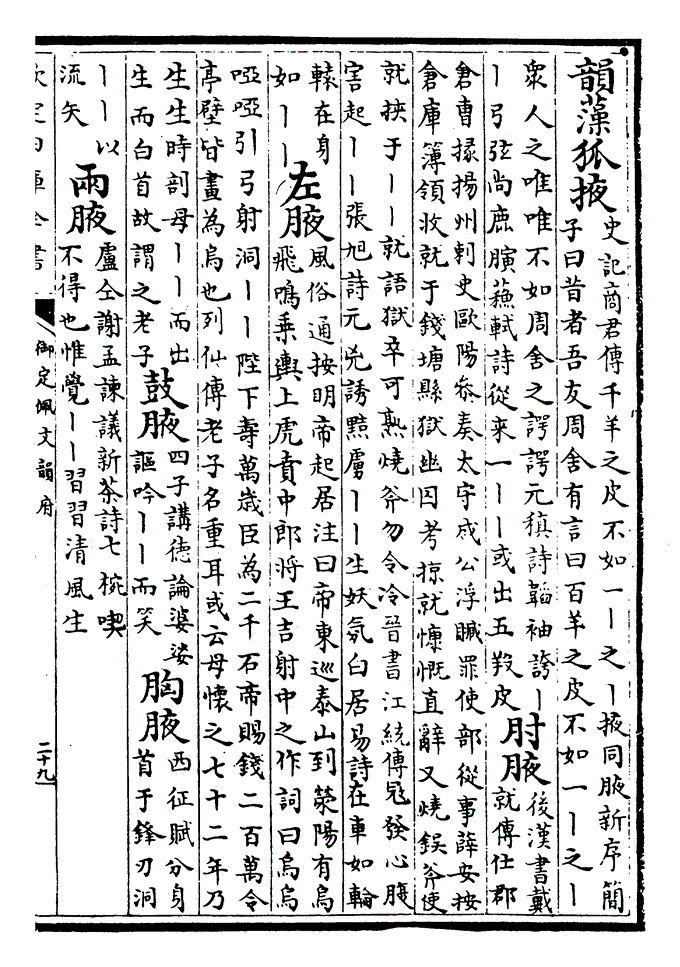 韻藻狐掖
史記商君傳千羊之皮不如一丨之丨掖同腋新序簡
子曰昔者吾友周舍有言曰百羊之皮不如一丨之丨
衆人之唯唯不如周舍之諤諤元稹詩韜袖誇丨
丨弓弦尚鹿䐿蘇軾詩從来一丨丨或出五羖皮
肘腋
後漢書戴
就傳仕郡
倉曹掾揚州刺史歐陽叅奏太守成公浮贓罪使部從事薛安按
倉庫簿領收就于錢塘縣獄幽囚考掠就慷慨直辭又燒鋘斧使
就挾于丨丨就語獄卒可熟燒斧勿令冷晉書江統傳㓂發心腹
害起丨丨張旭詩元兇誘黠虜丨丨生妖氛白居易詩在車如輪
轅在身
如丨丨
左腋
風俗通按明帝起居注曰帝東巡泰山到滎陽有烏
飛鳴乗輿上虎賁中郎将王吉射中之作詞曰烏烏
啞啞引弓射洞丨丨陛下壽萬歲臣為二千石帝賜錢二百萬令
亭壁皆畫為烏也列仙傳老子名重耳或云母懐之七十二年乃
生生時剖母丨丨而出
生而白首故謂之老子
鼓腋
四子講徳論婆娑
謳吟丨丨而笑
胸腋
西征賦分身
首于鋒刃洞
丨丨以
流矢
兩腋
盧仝謝孟諫議新茶詩七椀喫
不得也惟覺丨丨習習清風生
欽定四庫全書
御定佩文韻府
二十九